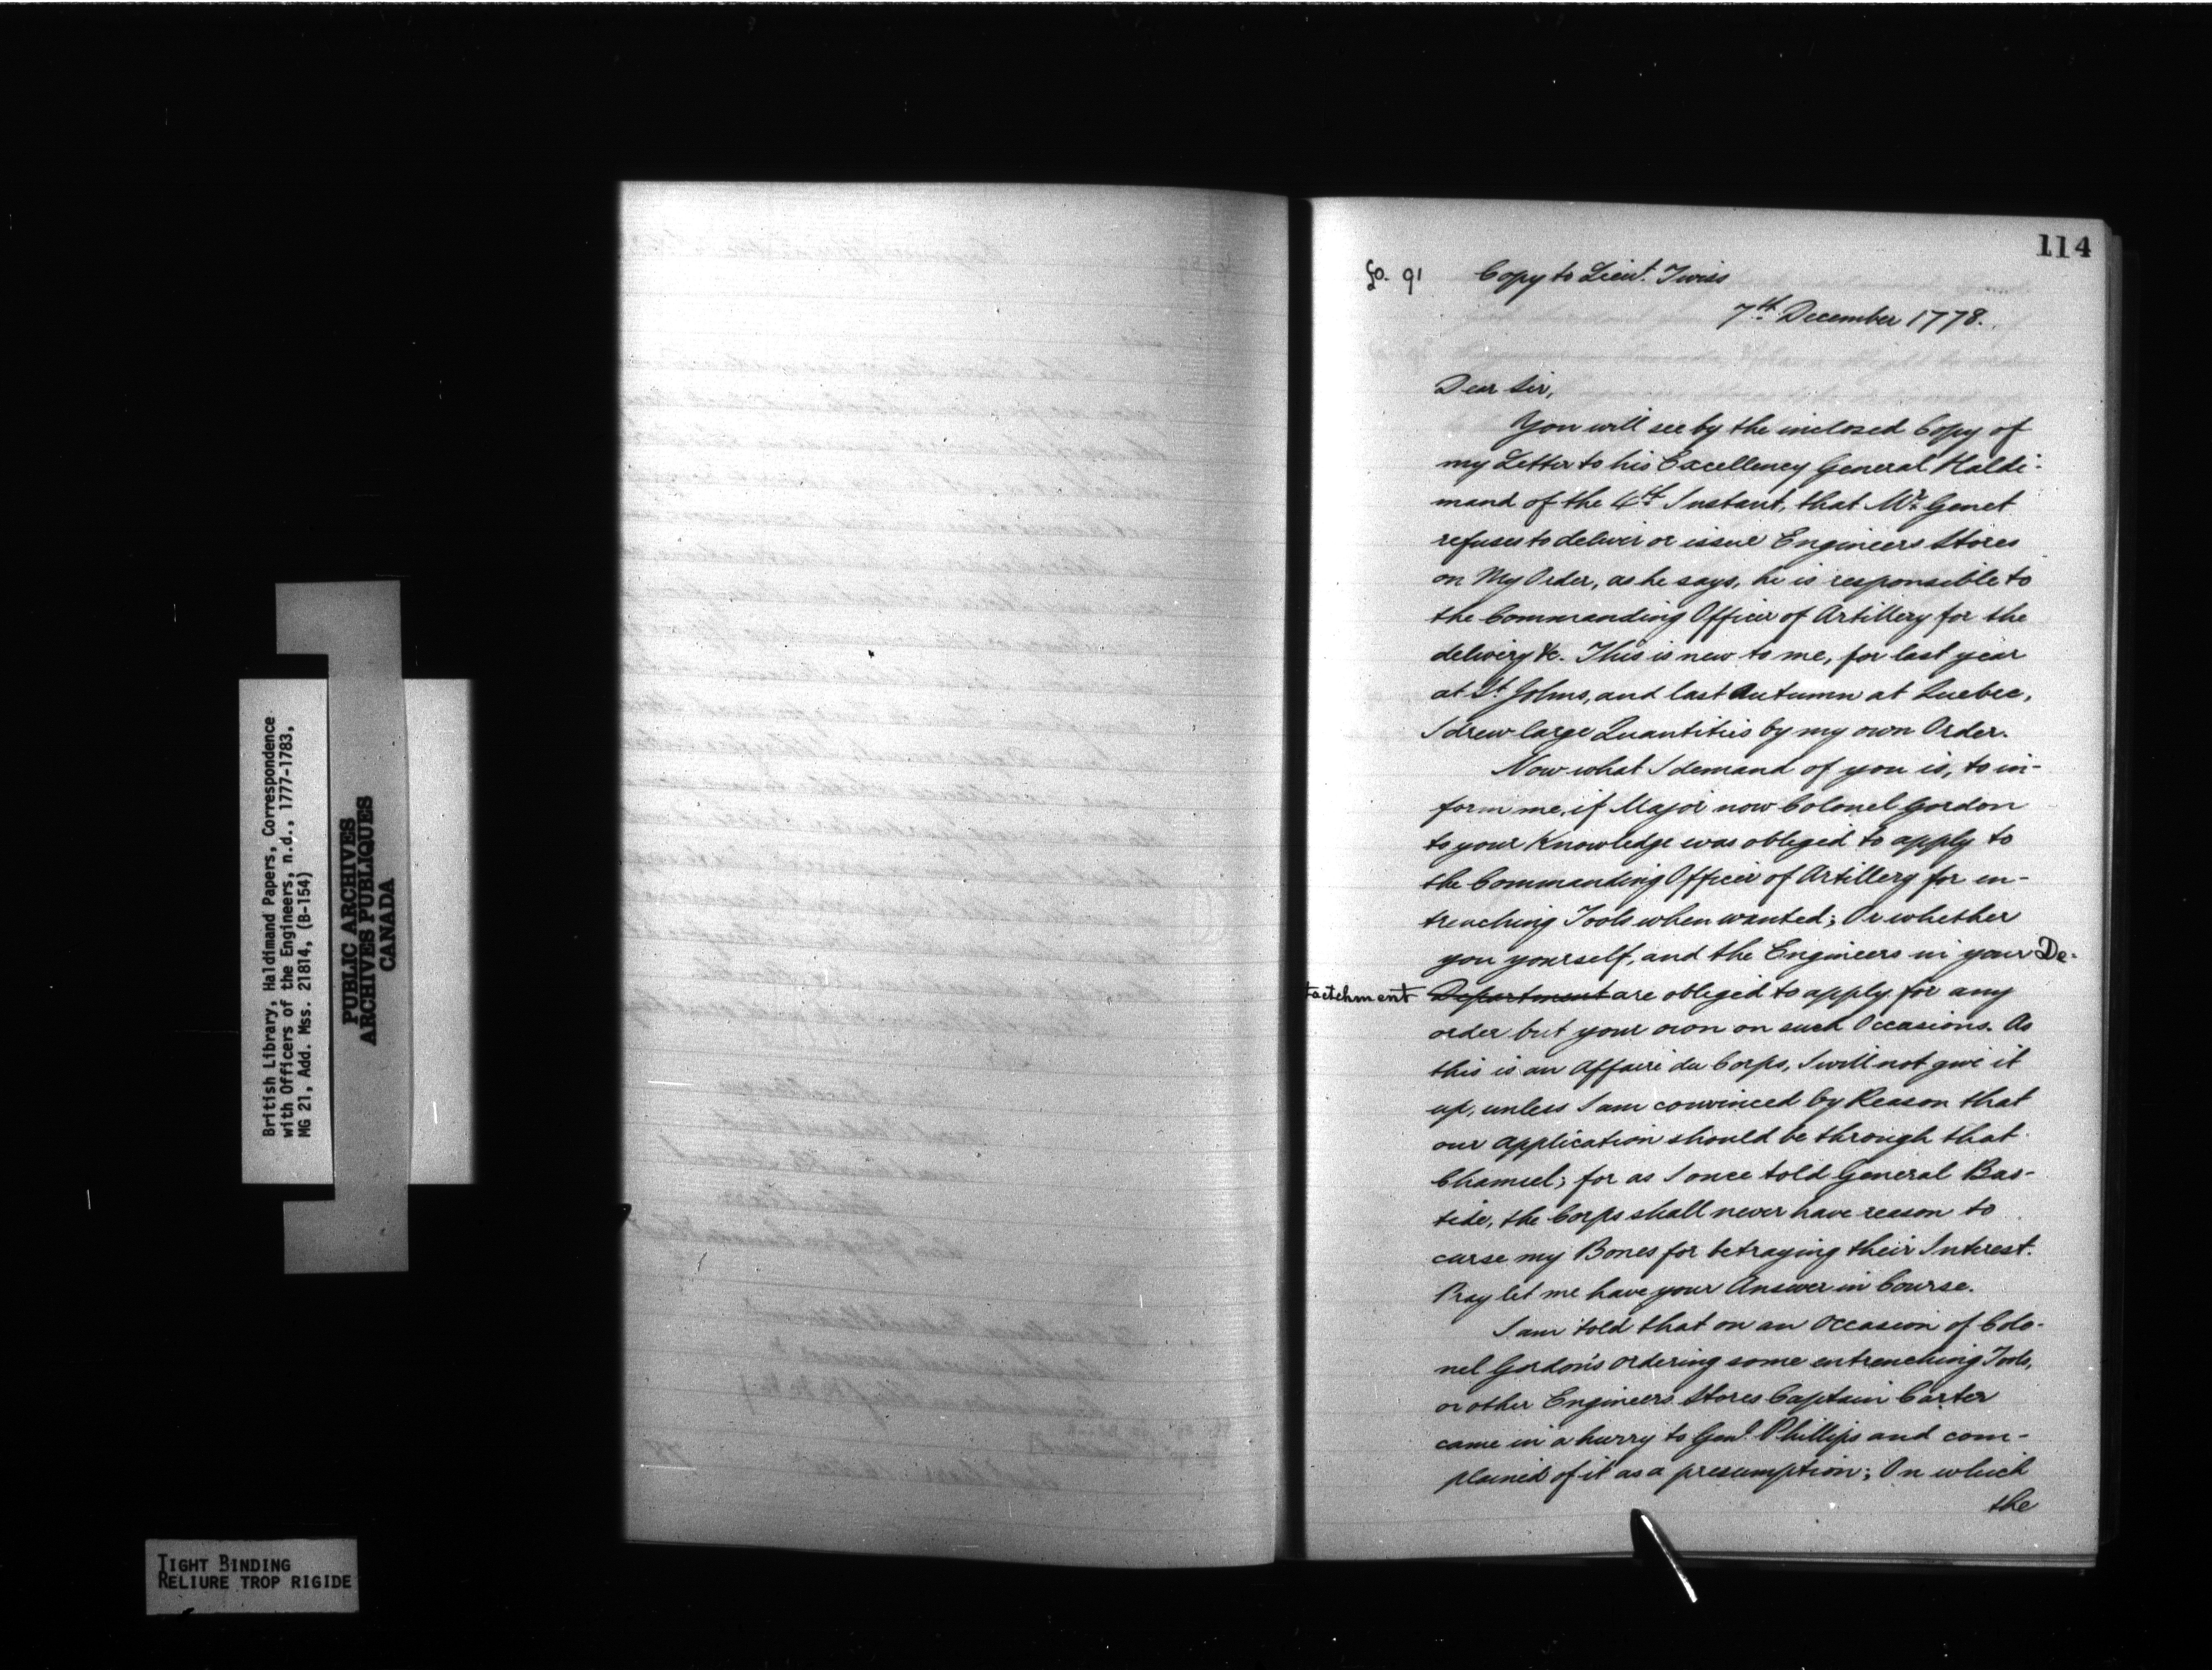 114
fo. 91
Copy to Lieut. Twiss
7th December 1778.
Dear Sir,
You will see by the inclosed Copy of
my Letter to his Excellency General Haldi-
mand of the 4th Instant, that Mr. Genet
refuses to deliver or issue Engineers Stores
on My Order, as he says, he is responsible to
the Commanding Officer of Artillery for the
delivery &c. This is new to me, for last year
at St. Johns, and last Autumn at Quebec,
I drew large Quantities by my own Order.
Now what I demand of you is, to in-
form me, if Major now Colonel Gordon
to your Knowledge was obliged to apply to
the Commanding Officer of Artillery for en-
trenching Tools when wanted; Or whether
you yourself, and the Engineers in your De-
tactchment Department are obliged to apply for any
order but your own on such Occasions. As
this is an Affaire du Corps, I will not give it
up, unless I am convinced by Reason that
our application should be through that
Channel; for as I once told General Bas-
tide, the Corps shall never have reason to
curse my Bones for betraying their Interest.
Pray let me have your Answer in Course.
I am told that on an Occasion of Colo-
nel Gordon's ordering some entrenching Tools,
or other Engineers Stores Captain Carter
came in a hurry to Genl. Phillips and com-
plained of it as a presumption; On which
the
British Library, Haldimand Papers, Correspondence
with Officers of the Engineers, n.d., 1777-1783,
MG 21, Add. Mss. 21814, (B-154)
PUBLIC ARCHIVES
ARCHIVES PUBLIQUES
CANADA
TIGHT BINDING
RELIURE TROP RIGIDE